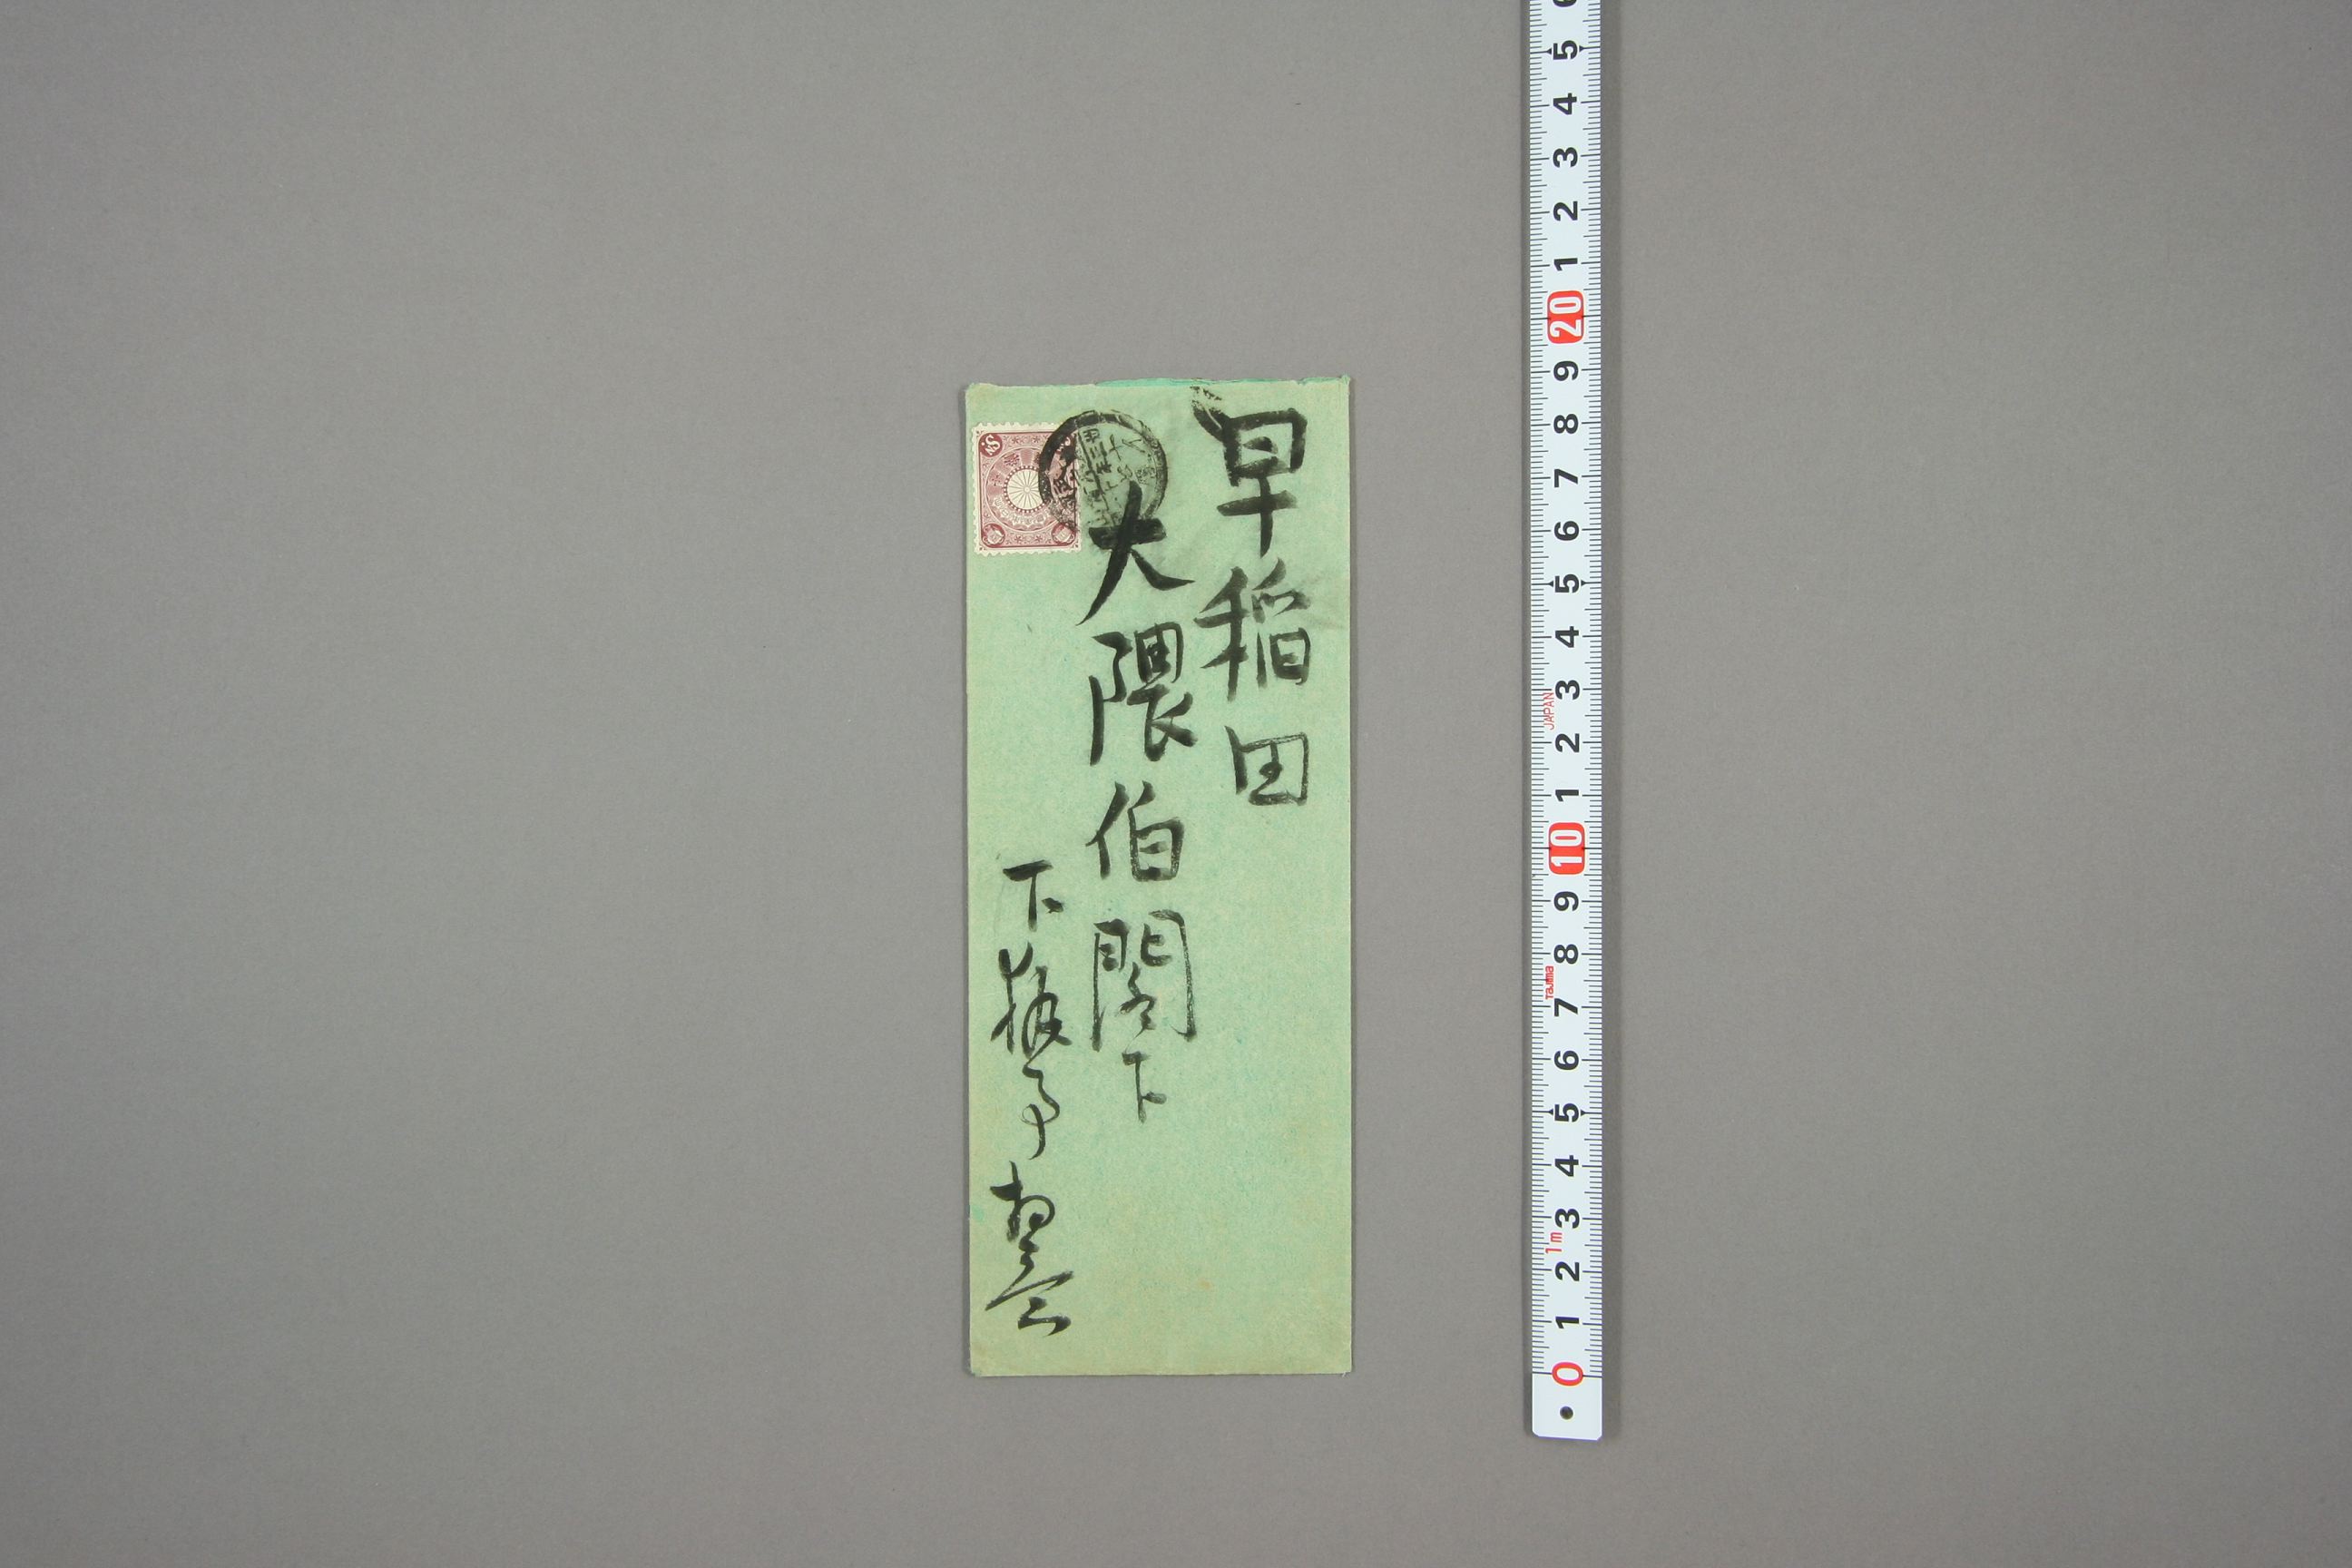 早稲田
大隈伯閣下
下
6
5
4
3
2
1
20
9
8
7
6
5
4
3
JAPAN
2
1
10
9
8
Tajima
7
6
5
4
3
1m
2
1
0